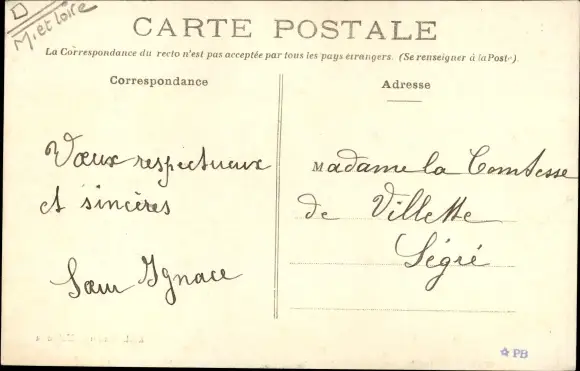 M. et Loire
CARTE POSTALE
La Correspondance du recto n'est pas acceptée par tous les pays étrangers. (Se renseigner à la Poste).
Correspondance
Adresse
Vœux respectueux
et sincères
Sœur Ignace
Madame la Comtesse
de Villette
Ségré
PB